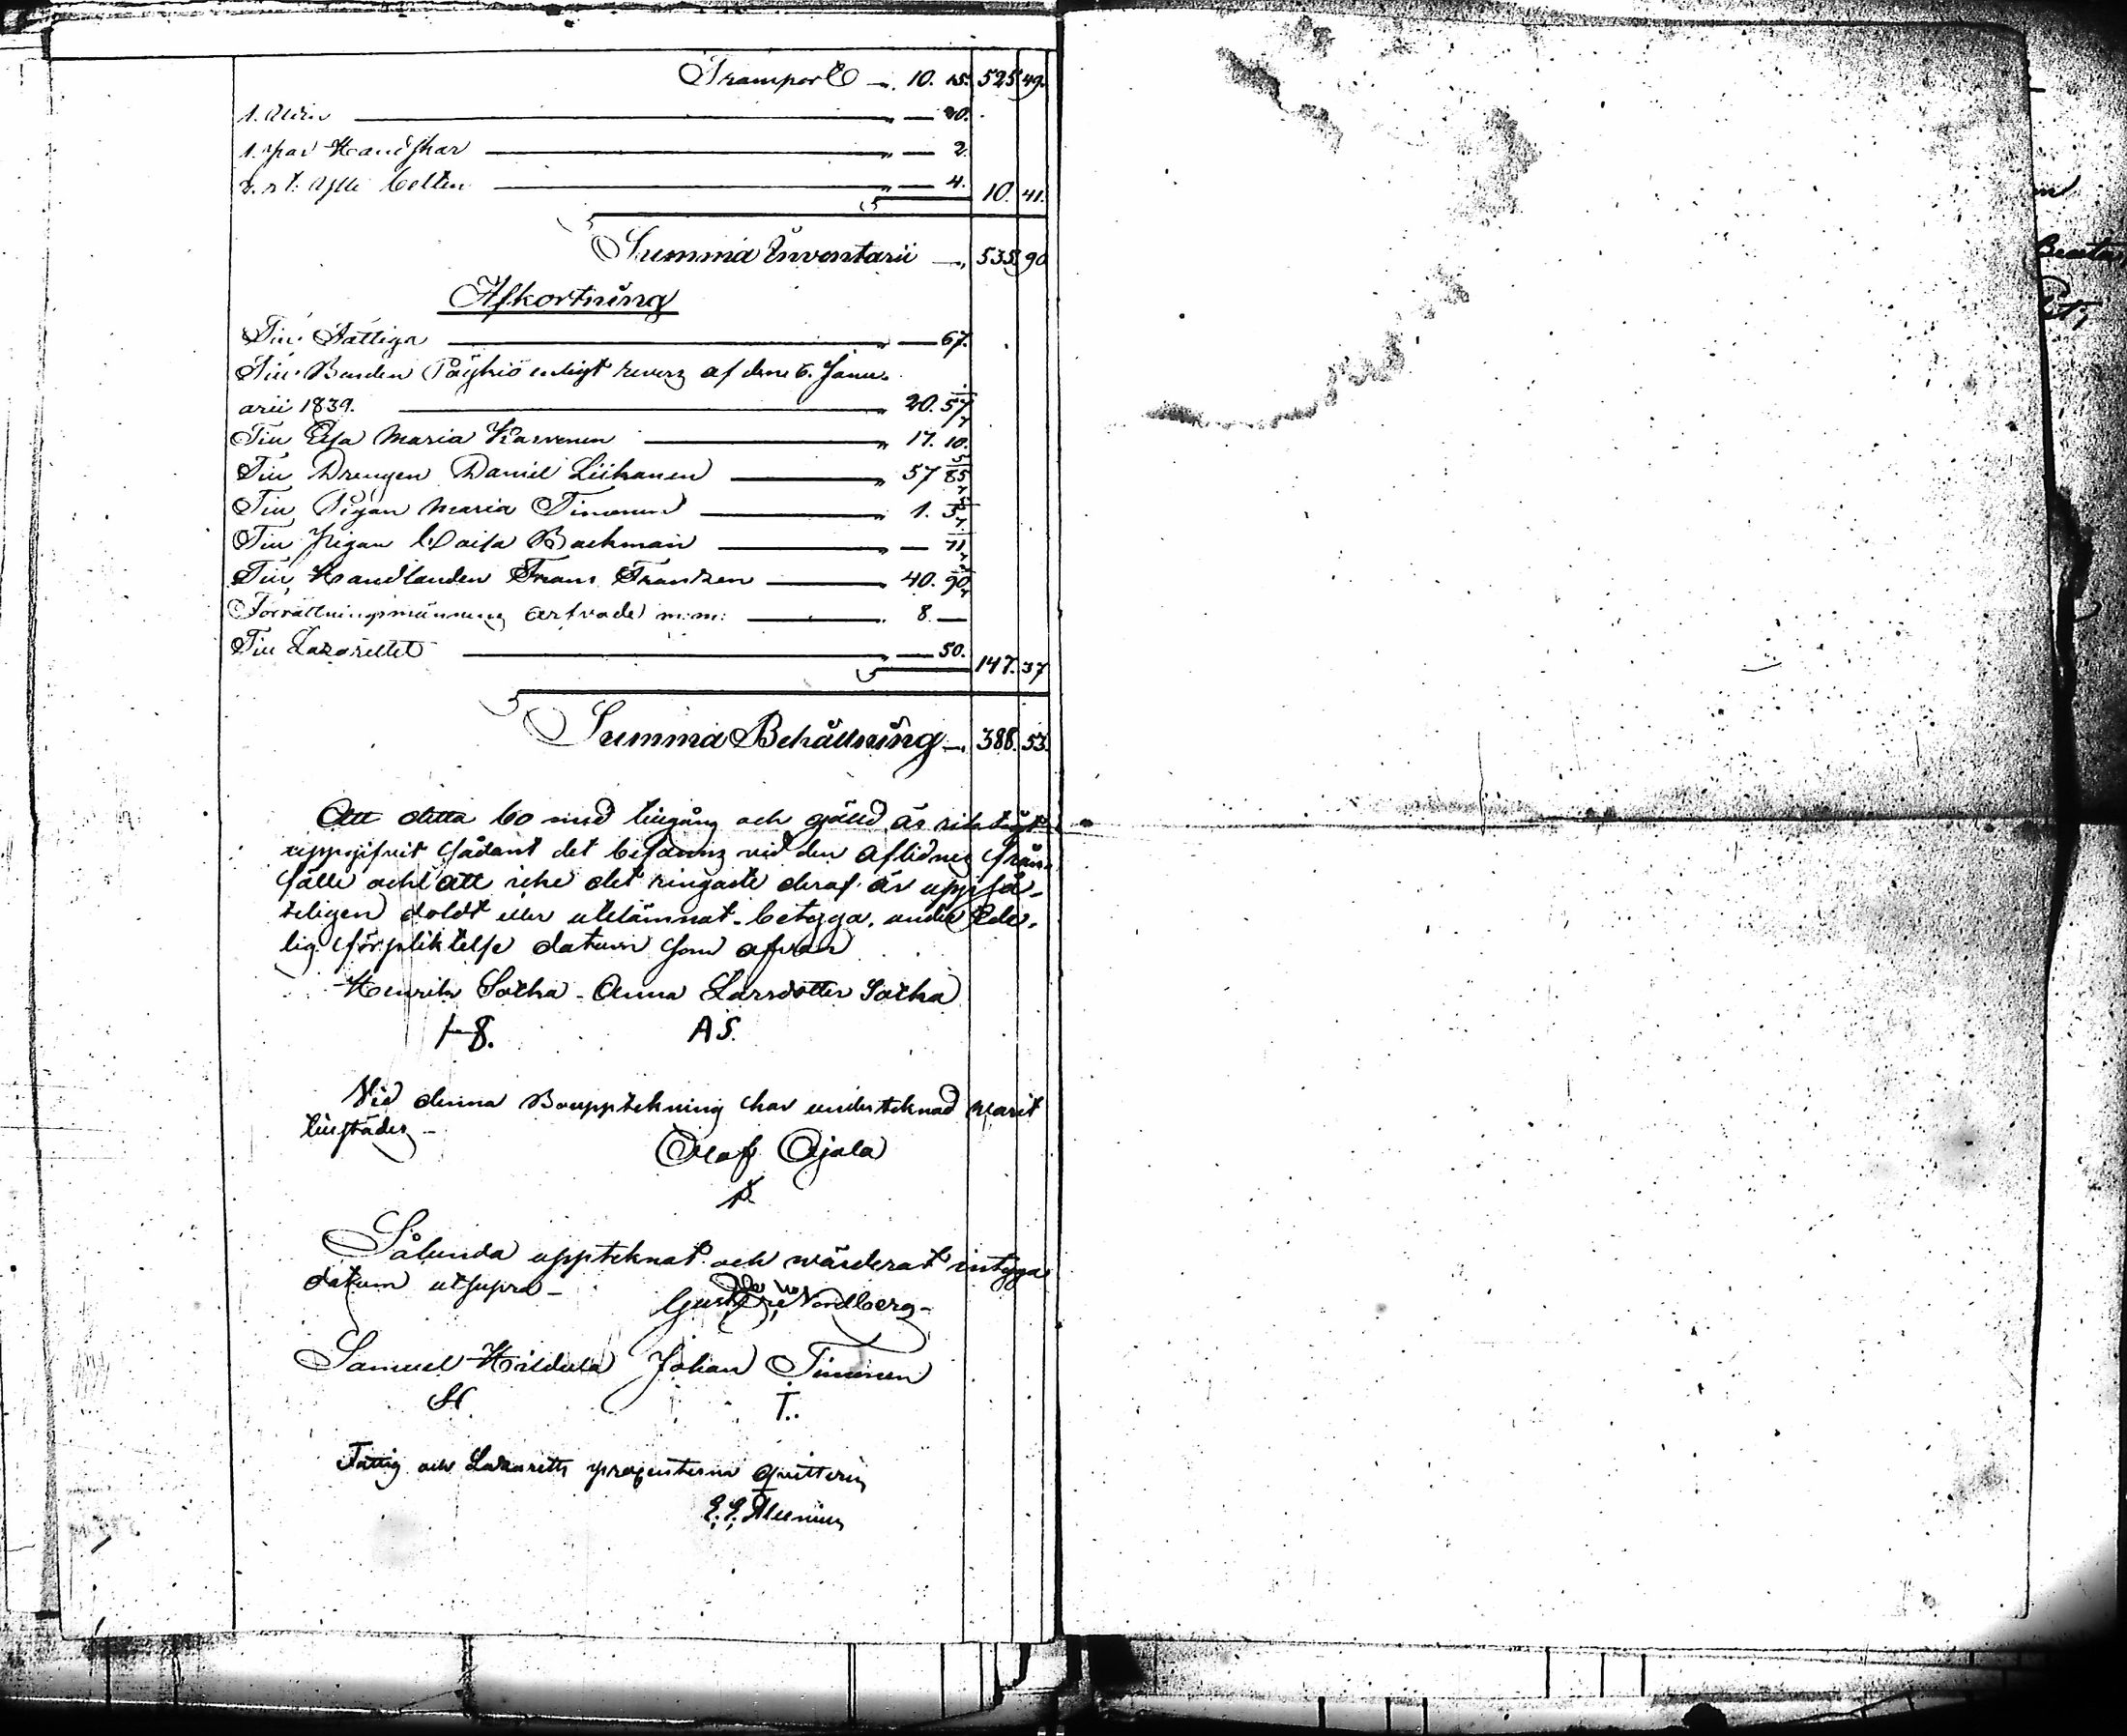 Transport — 10. 15. 525 49.
1. — 20.
1. par Handskar — 2.
2. st. Ylle Bälten — 4. 10. 41.
Summa Inventarii — 535 90
Afkortning
Till Fattiga — 67.
Till Bonden Päykiö enligt revers af den 6. Janu-
arii 1839. — 20. 57
Till Elsa Maria Karvonen — 17. 10.
Till Drengen Daniel Liikanen — 57 85
Till Pigan Maria Timonen — 1. 5
Till Pigan Caisa Backman — 71
Till Handlanden Frans Franzen — 40. 90
Förrättningsmännens arfvode m:m: — 8. —
Till Lazarettet — 50. 147. 37
Summa Behållning — 388. 53.
Att detta bo med tillgång och gäld är riktigt
uppgifvit sådant det befanns vid den aflidnes från-
fälle och att icke det ringaste deraf är uppså-
teligen doldt eller utelämnat, betygar under Ede-
lig förpliktelse datum som ofvan
Henrik Sotka - Anna Larsdotter Sotka
H S. A S.
Vid denna Bouppteckning har undertecknad varit
tillstädes -
Olof Ojala
Sålunda upptecknat och wärderat intyga
datum utsupra -
Gust. Nordberg -
Samuel Johan Timonen
SH T.
Fattig och Lazaretts procenterne quitteras
E. E.
Beata